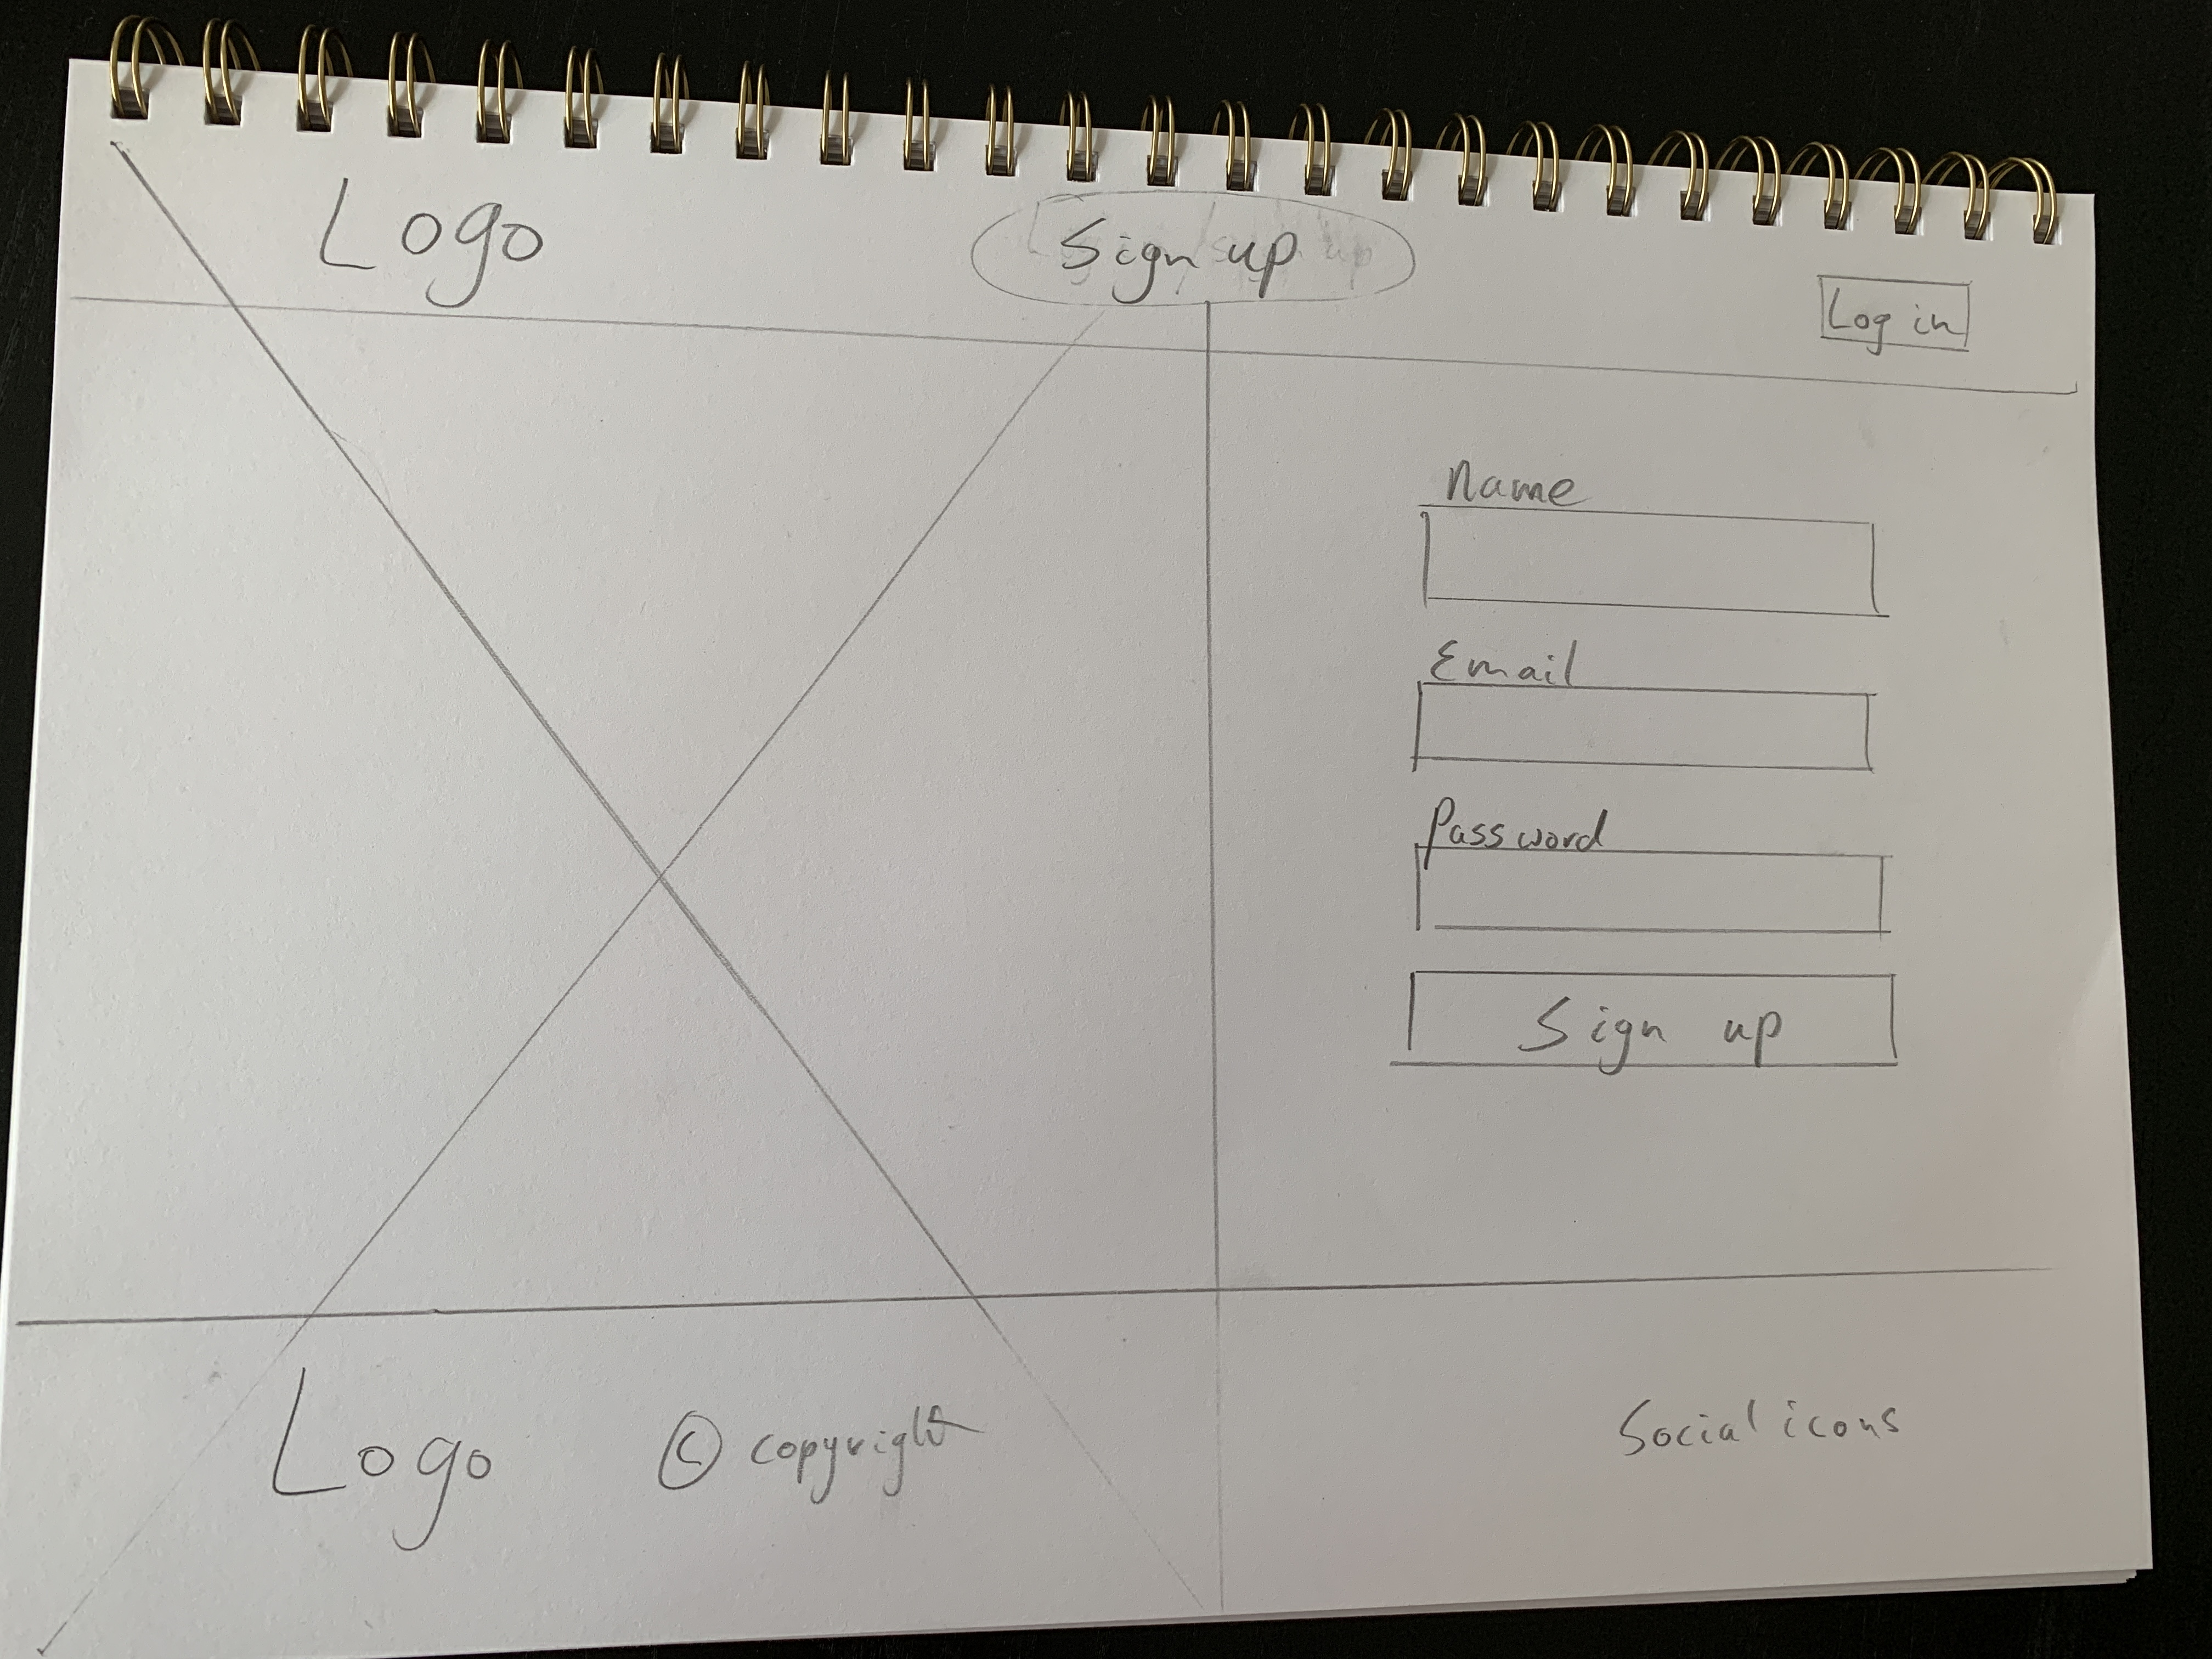 Logo
Sign up
Log in
Name
Email
Password
Sign up
Logo © copyright
Social icons